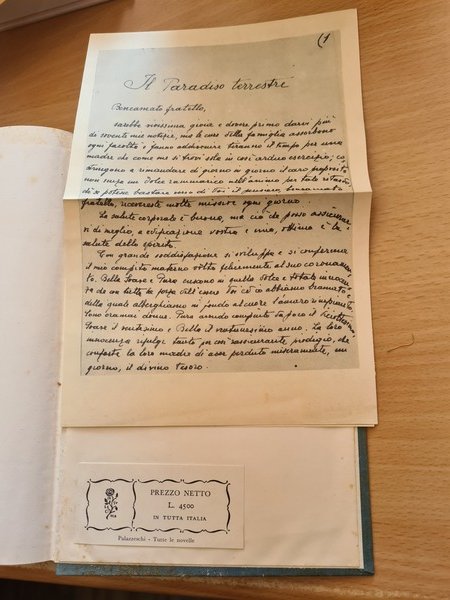 (1
Il Paradiso terrestre
Bencamato fratello,
sarebbe vivissima gioia e dovere primo darvi più
di sovente mie notizie, ma le cure della famiglia assorbono
ogni facoltà e fanno addivenire tiranno il tempo per una
madre che come me si trovi sola in così arduo esercizio; co
stringono a rimandare di giorno in giorno il caro proposito
non senza un dolce rammarico nell'animo per tale volontà,
di potesse bastare verso di Voi il pensiero, bencamato
fratello, ricevereste molte missive ogni giorno.
La salute corporale è buona, ma ciò che posso assicurar
vi di meglio, a edificazione vostra e mia, ottima è la
salute dello spirito.
Con grande soddisfazione si sviluppa e si conferma
il mio compito materno volto felicemente al suo coronamen
to. Bella Soave e Pura crescono in quella dolce e totale innocen
za de con tutte le forze dell'essere Voi ed io abbiamo bramata e
della quale alberghiamo in fondo al cuore l'amaro rimpianto.
Sono oramai donne. Pura avendo compiuto da poco il diciottesimo,
Soave il ventesimo e Bella il ventunesimo anno. La loro
innocenza rifulge tanto per così rassicurante prodigio, che
conforta la loro madre di aver perduto miseramente, un
giorno, il divino tesoro.
PREZZO NETTO
L. 4500
IN TUTTA ITALIA
Palazzeschi - Tutte le novelle